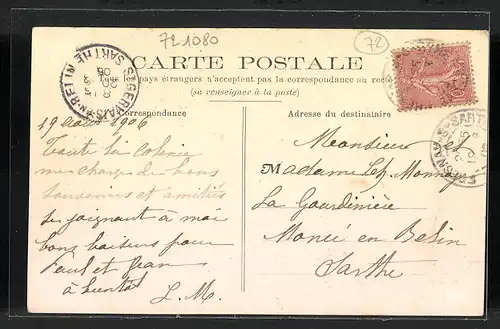 721080
72
CARTE POSTALE
Tous les pays étrangers n'acceptent pas la correspondance au recto
(se renseigner à la poste)
Correspondance
19 Août 1906
Toute la Colonie
me charge de bons
souvenirs et amitiés
se joignant à moi
bons baisers pour
Paul et Jean
à bientôt
L. M.
Adresse du destinataire
Monsieur et
Madame
La Gourdinière
Moncé en Belin
Sarthe
ST GERVAIS-EN-BELIN
SARTHE